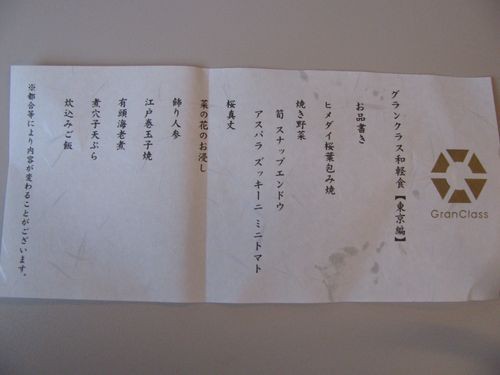 GranClass
グランクラス和軽食【東京編】
お品書き
ヒメダイ桜葉包み焼
焼き野菜
筍 スナップエンドウ
アスパラ ズッキーニ ミニトマト
桜真丈
菜の花のお浸し
飾り人参
江戸巻玉子焼
有頭海老煮
煮穴子天ぷら
炊込みご飯
※都合等により内容が変わることがございます。